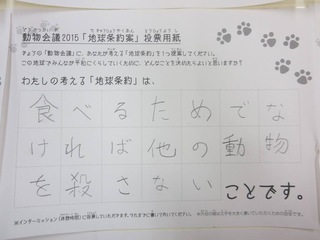 動物会議2015「地球条約案」投票用紙
きょうの「動物会議」に、あなたが考える「地球条約」を1つ提案してください。
この地球でみんなが平和にくらしていくために、どんなことを決めたらよいと思いますか?
わたしの考える「地球条約」は、
食べるためでな
ければ他の動物
を殺さない ことです。